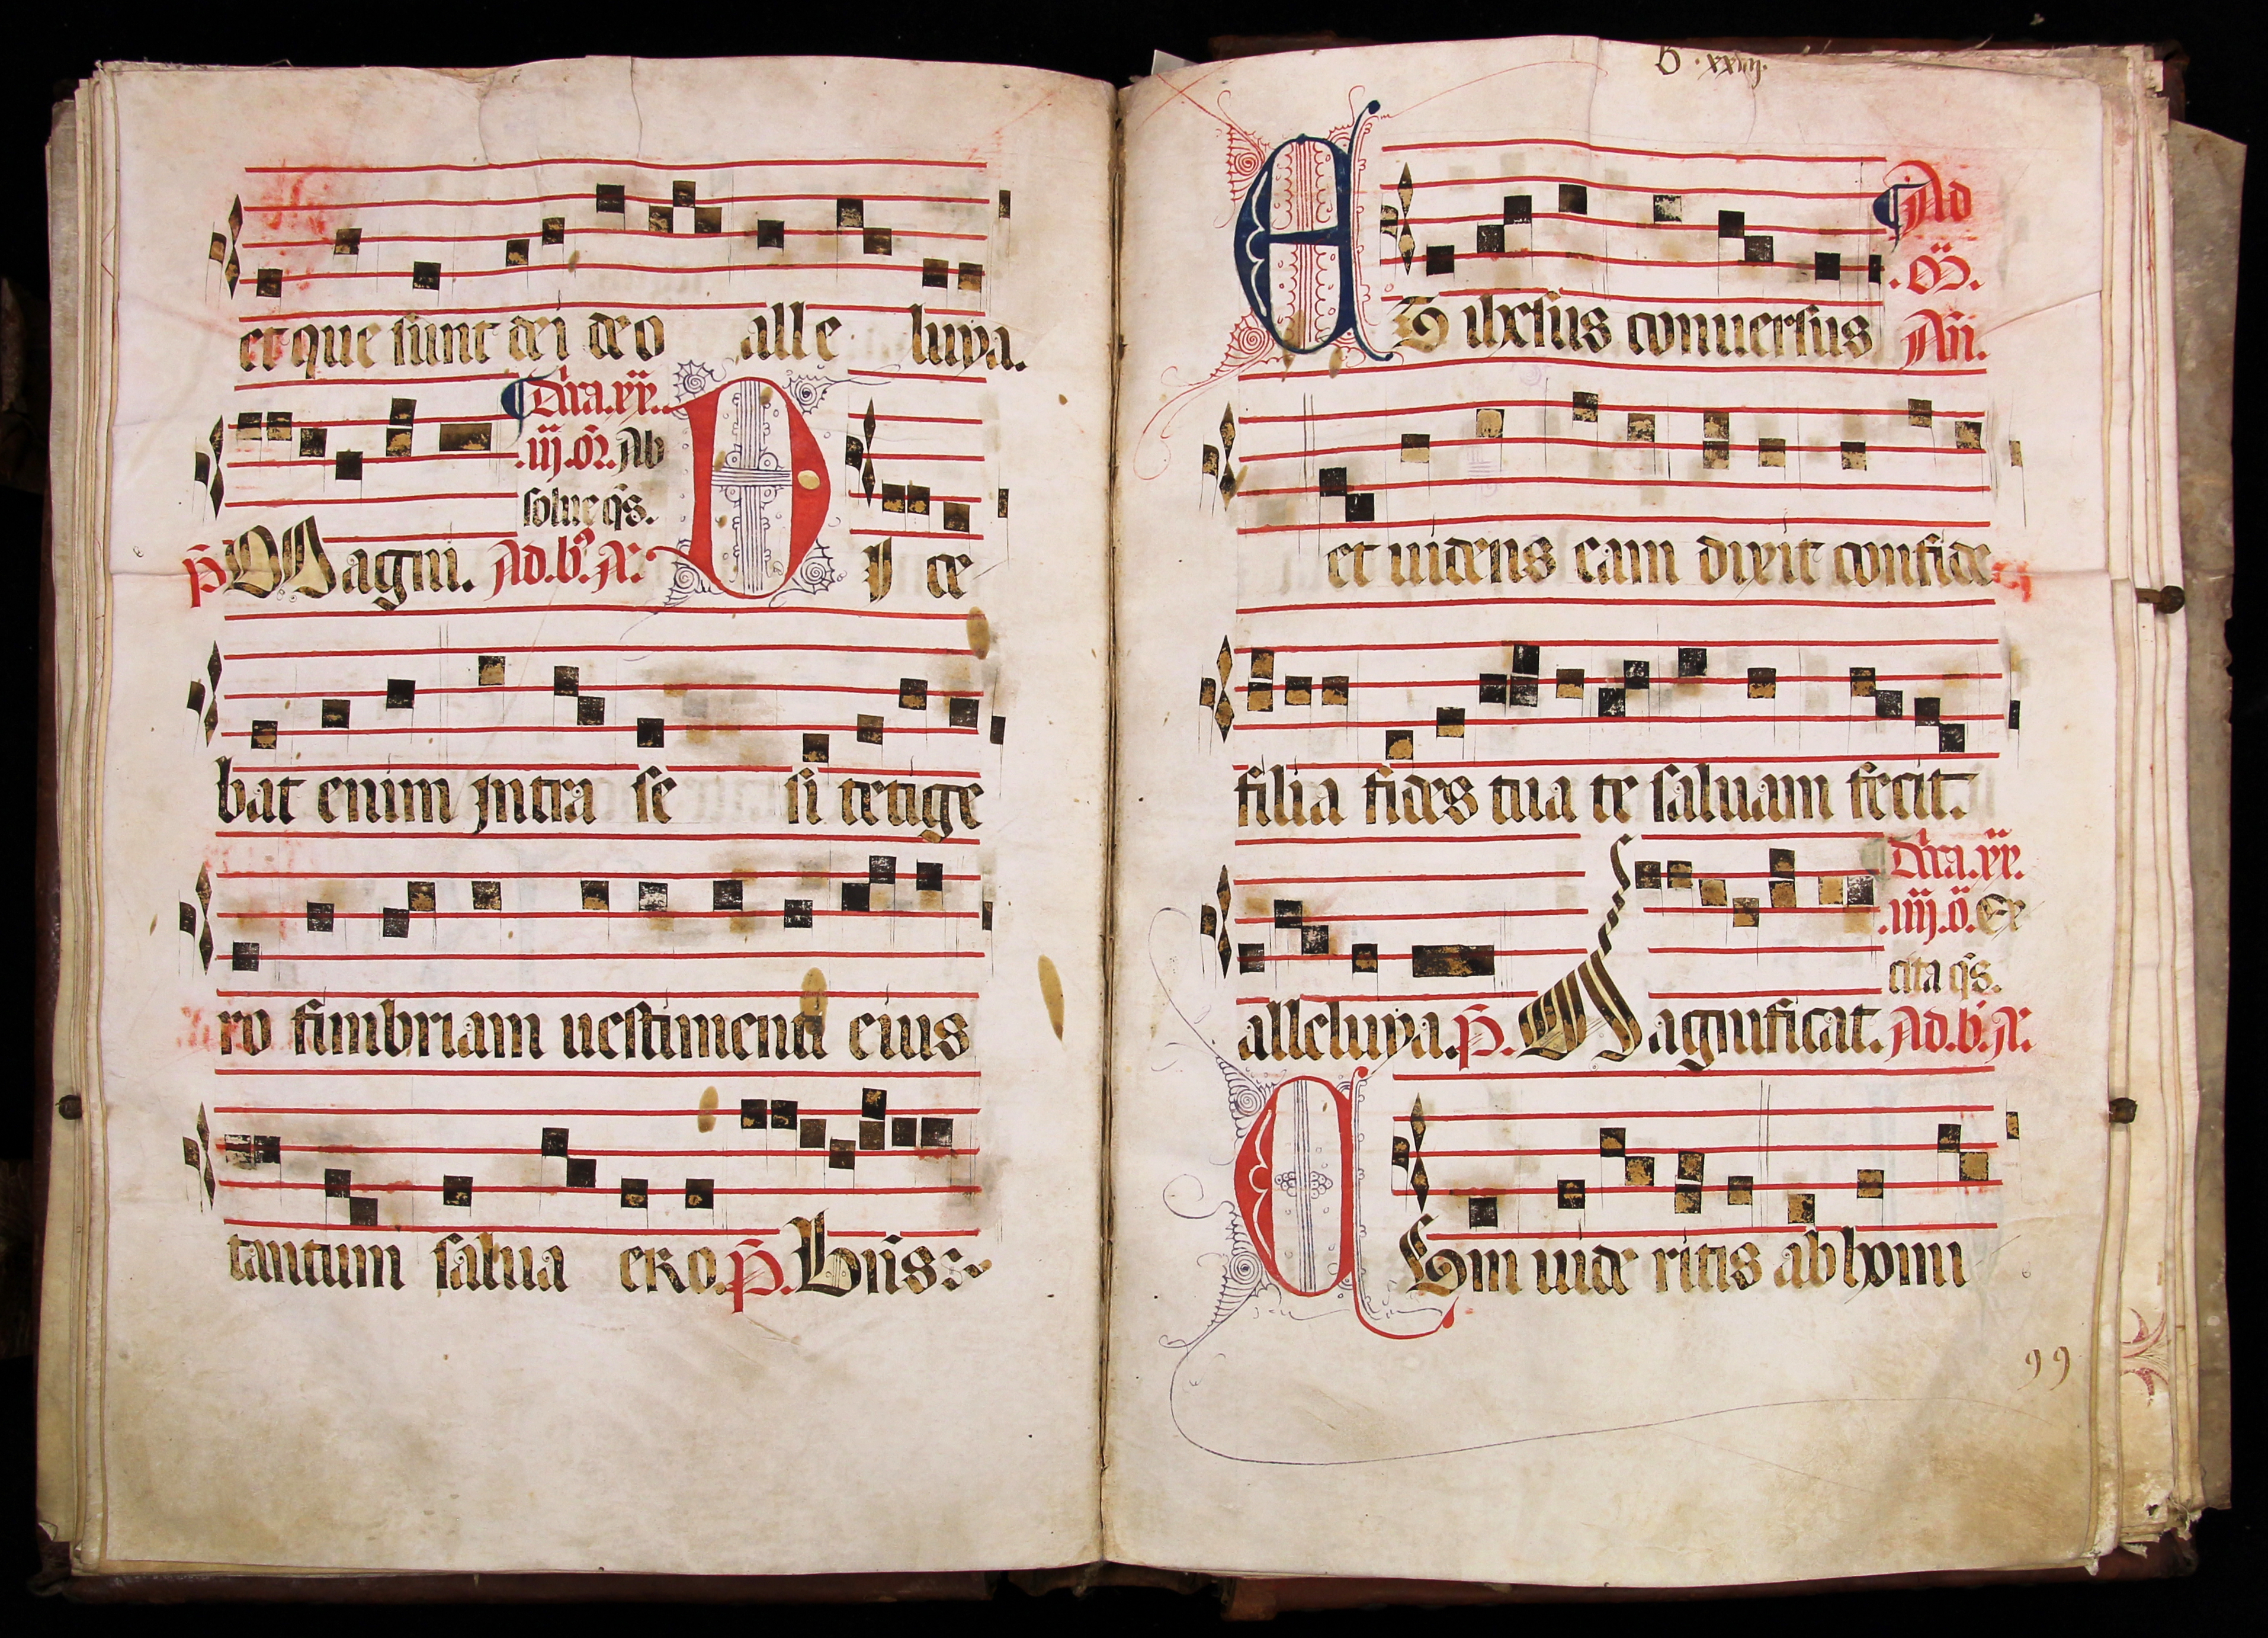 et que sunt dei deo alle luya.
Dn̄ca.xx.
.iij.oō. Ab
solue q̄s.
p̄ Magni. Ad.b̄. A. DI ce
bat enim intra se si tetige
ro fimbriam uestimenti eius
tantum salua ero. p̄. Bn̄s
xxiiij.
Ad
.M̄.
An̄.
AT ihesus conuersus
et uidens eam dixit confide
filia fides tua te saluam fecit.
Dn̄ca.xx.
.iiij.ō. Ex
cita q̄s.
alleluya. p̄. Magnificat. Ad.b̄. A.
CUm uide ritis abhomi
99